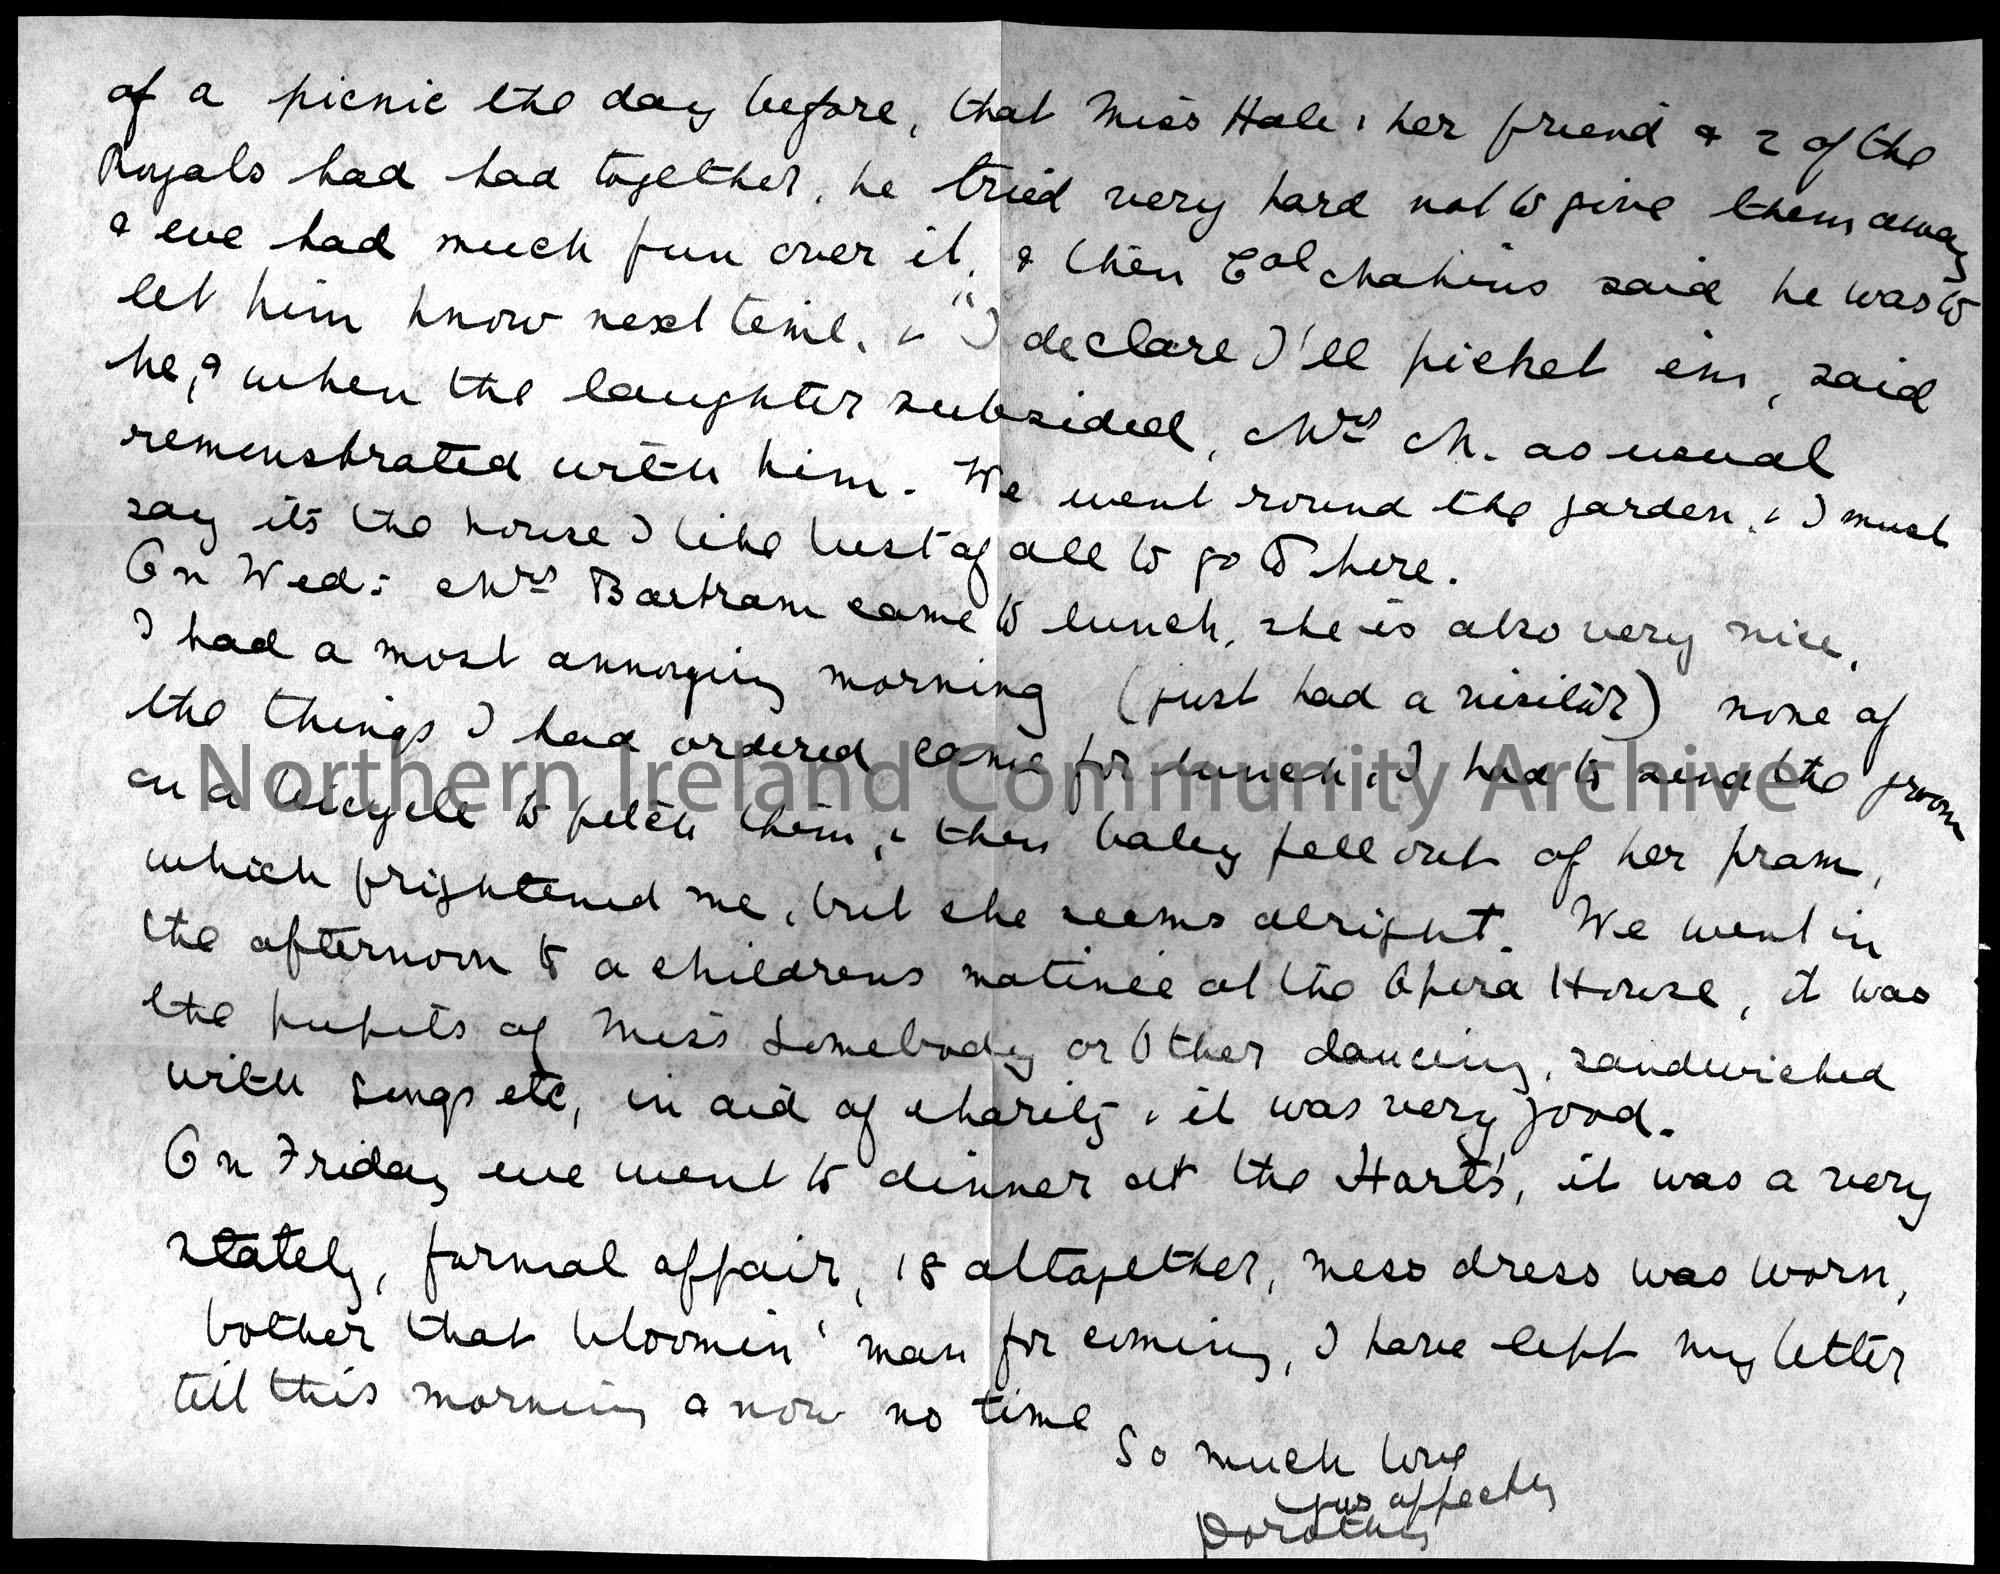 of a picnic the day before, that Miss Hale & her friend & 2 of the
Royals had had together, he tried very hard not to give them away
& we had much fun over it, & then Col said he was to
let him know next time, & "I declare I'll picket em, said
he, & when the laughter subsided, Mrs M. as usual
remonstrated with him. We went round the garden, & I must
say its the house I like best of all to go to here.
On Wed: Mrs Bartram came to lunch, she is also very nice,
I had a most annoying morning (just had a visitor) none of
the things I had ordered came for lunch, & I had to send the groom
on a bicycle to fetch them, & then baby fell out of her pram,
which frightened me, but she seems alright. We went in
the afternoon to a childrens matinée at the Opera House, it was
the pupils of Miss Somebody or Other dancing, sandwiched
with songs etc, in aid of charity, & it was very good.
On Friday we went to dinner at the Harts', it was a very
stately, formal affair, 18 altogether, mess dress was worn,
bother that bloomin' man for coming, I have left my letter
till this morning & now no time
So much love
yrs affectly
Dorothy
Northern Ireland Community Archive